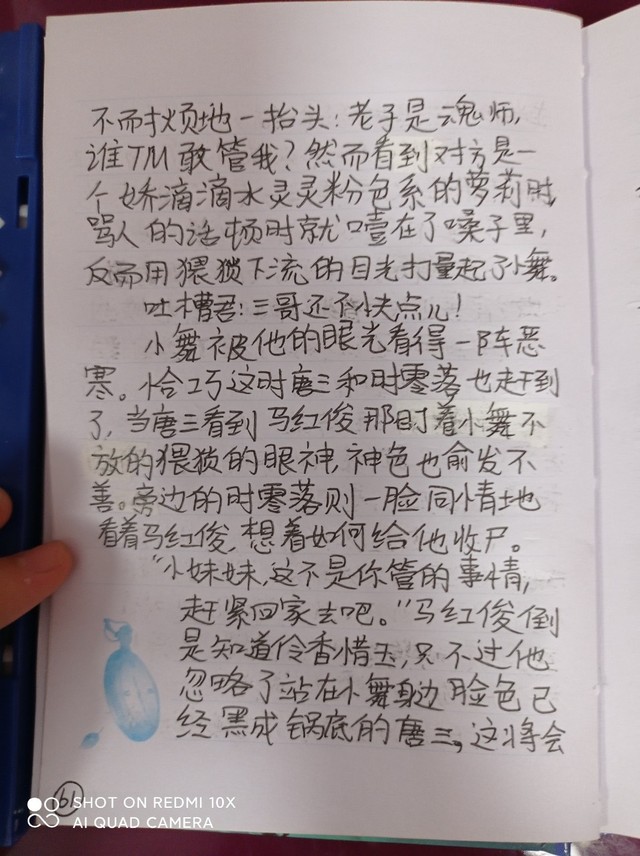 不耐烦地一抬头：老子是魂师，
谁TM敢管我？然而看到对方是一
个娇滴滴水灵灵粉色系的萝莉时，
骂人的话顿时就噎在了嗓子里，
反而用猥猥下流的目光打量起了小舞。
吐槽君：三哥还不快点儿！
小舞被他的眼光看得一阵恶
寒。恰巧这时唐三和时零落也赶到
了，当唐三看到马红俊那盯着小舞不
放的猥琐的眼神，神色也愈发不
善。旁边的时零落则一脸同情地
看着马红俊，想着如何给他收尸。
“小妹妹，这不是你管的事情，
赶紧回家去吧。”马红俊倒
是知道伶香惜玉，只不过他
忽略了站在小舞身边脸色已
经黑成锅底的唐三，这将会
61
SHOT ON REDMI 10X
AI QUAD CAMERA